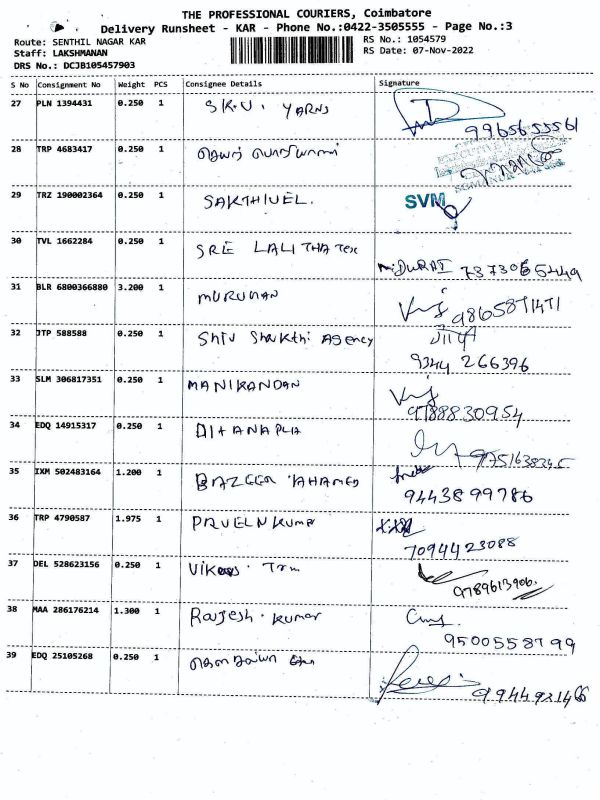 THE PROFESSIONAL COURIERS, Coimbatore
Delivery Runsheet - KAR - Phone No.:0422-3505555 - Page No.:3
Route: SENTHIL NAGAR KAR
RS No.: 1054579
Staff: LAKSHMANAN
RS Date: 07-Nov-2022
DRS No.: DCJB105457903
S No Consignment No Weight PCS Consignee Details Signature
27 PLN 1394431 0.250 1 S.K.U. YARNS
9965655561
28 TRP 4683417 0.250 1
29 TRZ 190002364 0.250 1 SAKTHIVEL. SVM
30 TVL 1662284 0.250 1 SRE LALITHA Tex
M. DURAI 7373065449
31 BLR 6800366880 3.200 1 MURUGAN
9865871471
32 JTP 588588 0.250 1 Shiv Shakthi Agency
9344 266396
33 SLM 306817351 0.250 1 MANIKANDAN
9788830954
34 EDQ 14915317 0.250 1
9751638345
35 IXM 502483164 1.200 1 BAZEER AHAMED
9443899786
36 TRP 4790587 1.975 1 PRVEEN KUMAR
7094423088
37 DEL 528623156 0.250 1
9789613906.
38 MAA 286176214 1.300 1 Rajesh. kumar
9500558799
39 EDQ 25105268 0.250 1